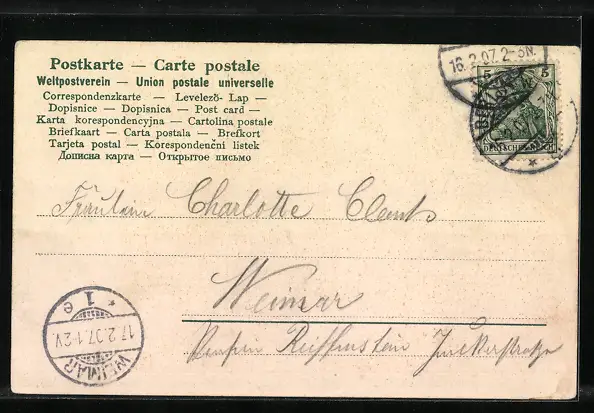 Postkarte — Carte postale
Weltpostverein — Union postale universelle
Correspondenzkarte — Levelező- Lap —
Dopisnice — Dopisnica — Post card —
Karta korespondencyjna — Cartolina postale
Briefkaart — Carta postala — Brefkort
Tarjeta postal — Korespondenční listek
Дописна карта — Открытое письмо
16.2.07.2-3N.
5 5
DEUTSCHES REICH
Fräulein Charlotte
Weimar
Pension Reiffenstein Junkerstraße
* 1 e
17.2.07.1-2V.
WEIMAR